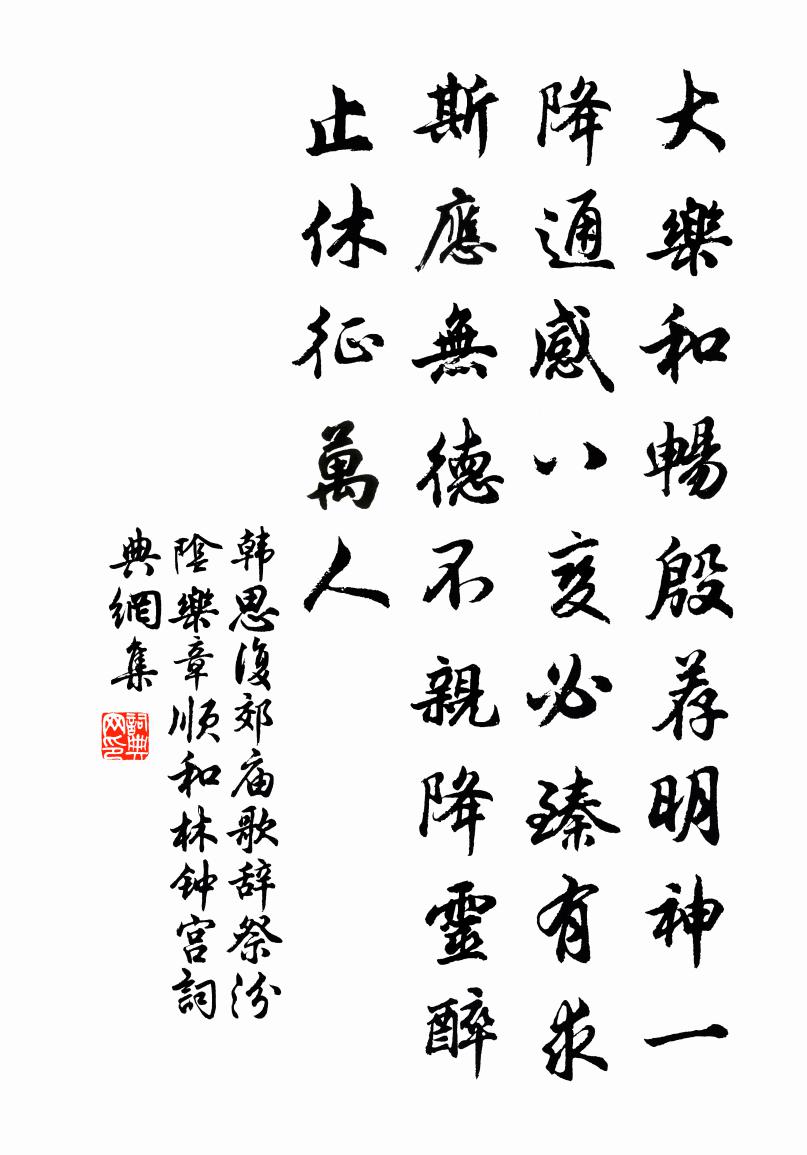 大樂和暢殷荐明神一
降通感八变必臻有求
斯應無德不親降靈醉
止休征萬人
韩思復郊庙歌辞祭汾
陰樂章順和林钟宫詞
典網集
詞典网印